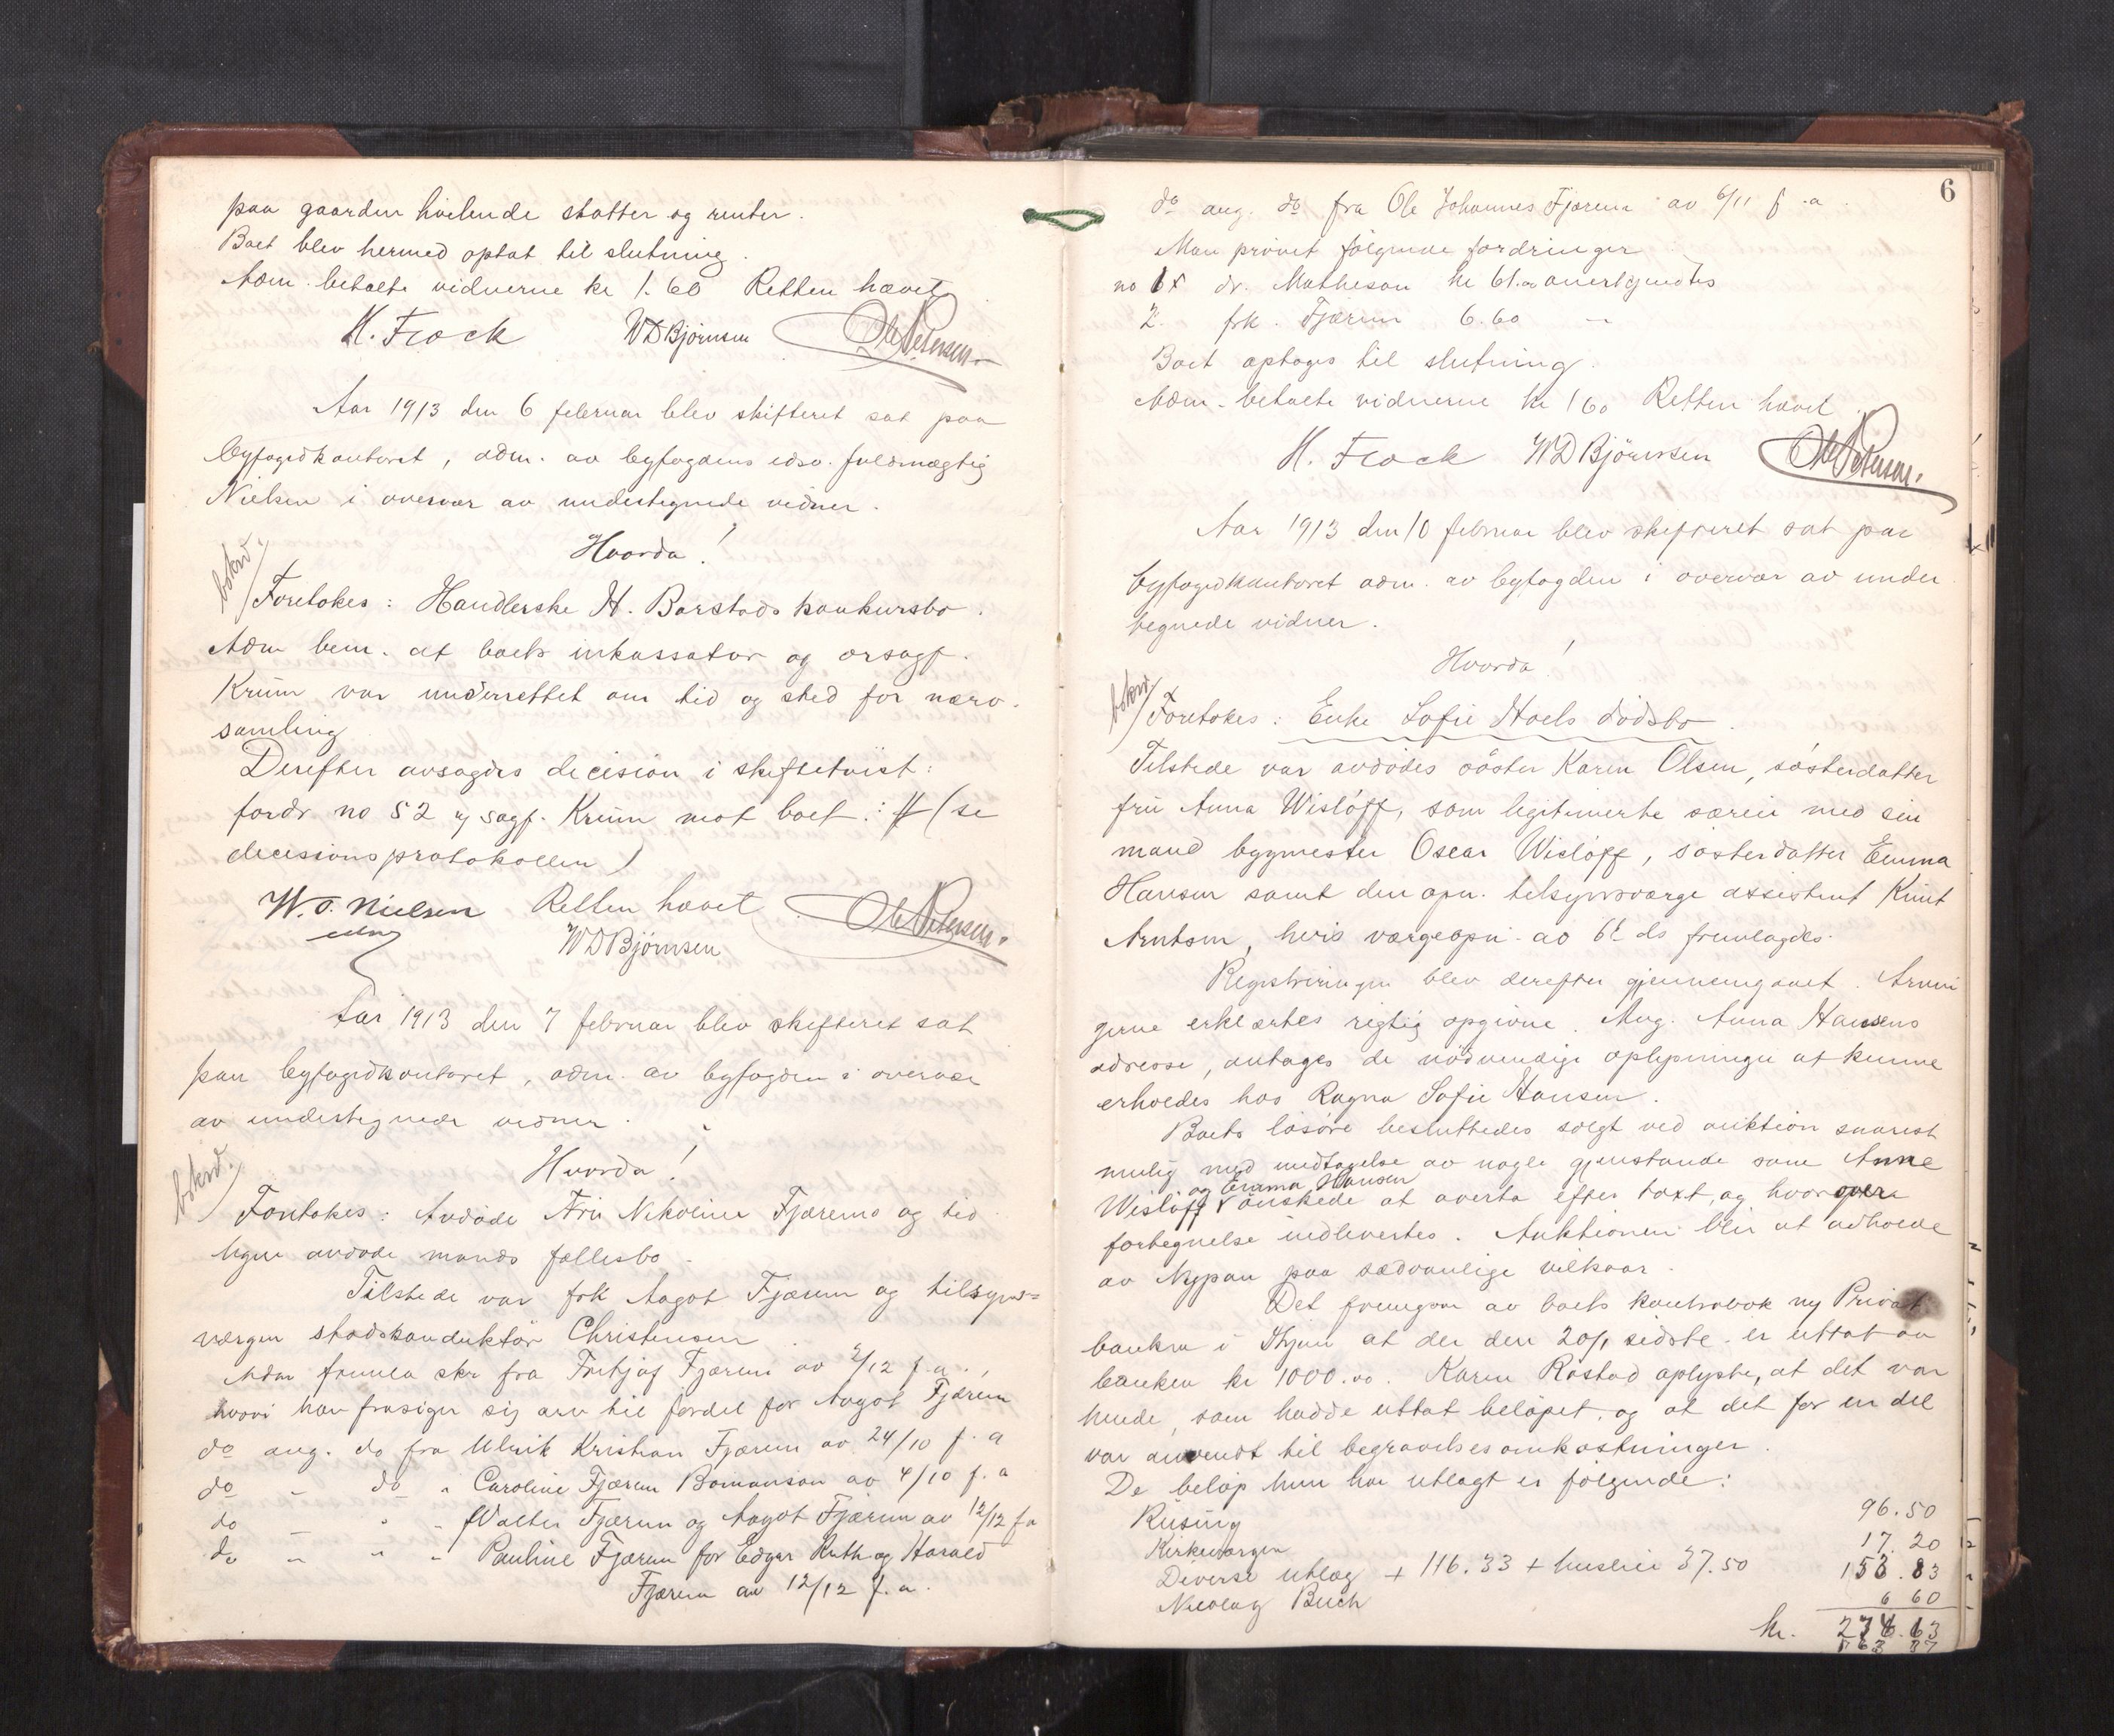 paa gaarden hvilende skatter og renter.
Boet blev hermed optat til slutning.
Adm. betalte vidnerne kr 1.60 Retten hævet
H. Frock WDBjørnsen Ole Petersen
Aar 1913 den 6 februar blev skifteret sat paa
byfogedkontoret, adm. av byfogdens edsv. fuldmægtig
Nielsen i overvær av undertegnede vidner.
Hvorda!
bokørt.
Foretokes: Handlerske H. Barstads konkursbo.
Adm bem. at boets inkassator og orsagf.
Krüm var underrettet om tid og sted for nærv.
samling
Derefter avsagdes decision i skiftetvist:
fordr no 52 sagf. Krüm mot boet: # (se
decisionsprotokollen)
W. O. Nielsen Retten hævet Ole Petersen
edsv WDBjörnsen
Aar 1913 den 7 februar blev skifteret sat
paa byfogedkontoret, adm. av byfogden i overvær
av undertegnede vidner.
Hvorda!
bokørt.
Foretokes: Avdøde Fru Nikoline Fjærems og tid
ligere avdøde mands fællesbo.
Tilstede var frk Aagot Fjærem og tilsyns=
værgen stadskonduktör Christensen
Adm fremla skr fra Fritjof Fjærem av 2/12 f.a.,
hvori han frasiger sig arv til fordel for Aagot Fjærem
do ang. do fra Ulrik Kristian Fjærem av 24/10 f. a
do " do " Caroline Fjærem Bomanson av 4/10 f. a
do " " " Walter Fjærem og Aagot Fjærem av 12/12 f a
do " " " Pauline Fjærem for Edgar Ruth og Harald
Fjærem av 12/12 f. a.
6
do ang. do fra Ole Johannes Fjærem av 6/11 f. a.
Man prøvet følgende fordringer
no 1 dr. Matheson kr 61.00 anerkjendtes
2. frk. Fjærem 6.60 "
Boet optages til slutning.
Adm. betalte vidnerne kr 1 60 Retten hævet.
H. Frock WDBjörnsen Ole Petersen.
Aar 1913 den 10 februar blev skifteret sat paa
byfogedkontoret adm. av byfogden i overvær av under
tegnede vidner.
Hvorda!
bokørt.
Foretokes: Enke Sofie Hoels dødsbo.
Tilstede var avdødes søster Karen Olsen, søsterdatter
fru Anna Wisløff, som legitimerte særeie med sin
mand bygmester Oscar Wisløff, søsterdatter Emma
Hansen samt den opn. tilsynsværge assistent Knut
Arntsen, hvis værgeopn. av 6t ds fremlagdes.
Registreringen blev derefter gjennemgaaet. Arvin
gerne erklærtes rigtig opgivne. Ang. Anna Hansens
adresse, antages de nødvendige oplysninger at kunne
erholdes hos Ragna Sofie Hansen.
Boets løsøre besluttedes solgt ved auktion snarest
mulig med undtagelse av nogle gjenstande som Anna
Wisløff og Emma Hansen ønskede at overta efter taxt, og hvorover
fortegnelse indlevertes. Auktionen blir at avholde
av Nypan paa sædvanlige vilkaar.
Det fremgaar av boets kontrabok Privat
banken i Thjem at der den 20/1 sidste er uttat av
banken kr 1000.00. Karen Røstad oplyste, at det var
hende, som hadde uttat beløpet, og at det for en del
var anvendt til begravelsesomkostninger.
De beløp hun har utlagt er følgende:
Rüsing 96.50
Kirkevergen 17.20
Diverse utlæg + 116.33 + husleie 37.50 153.83
Nicolay Buch 6 60
kr. 274.13